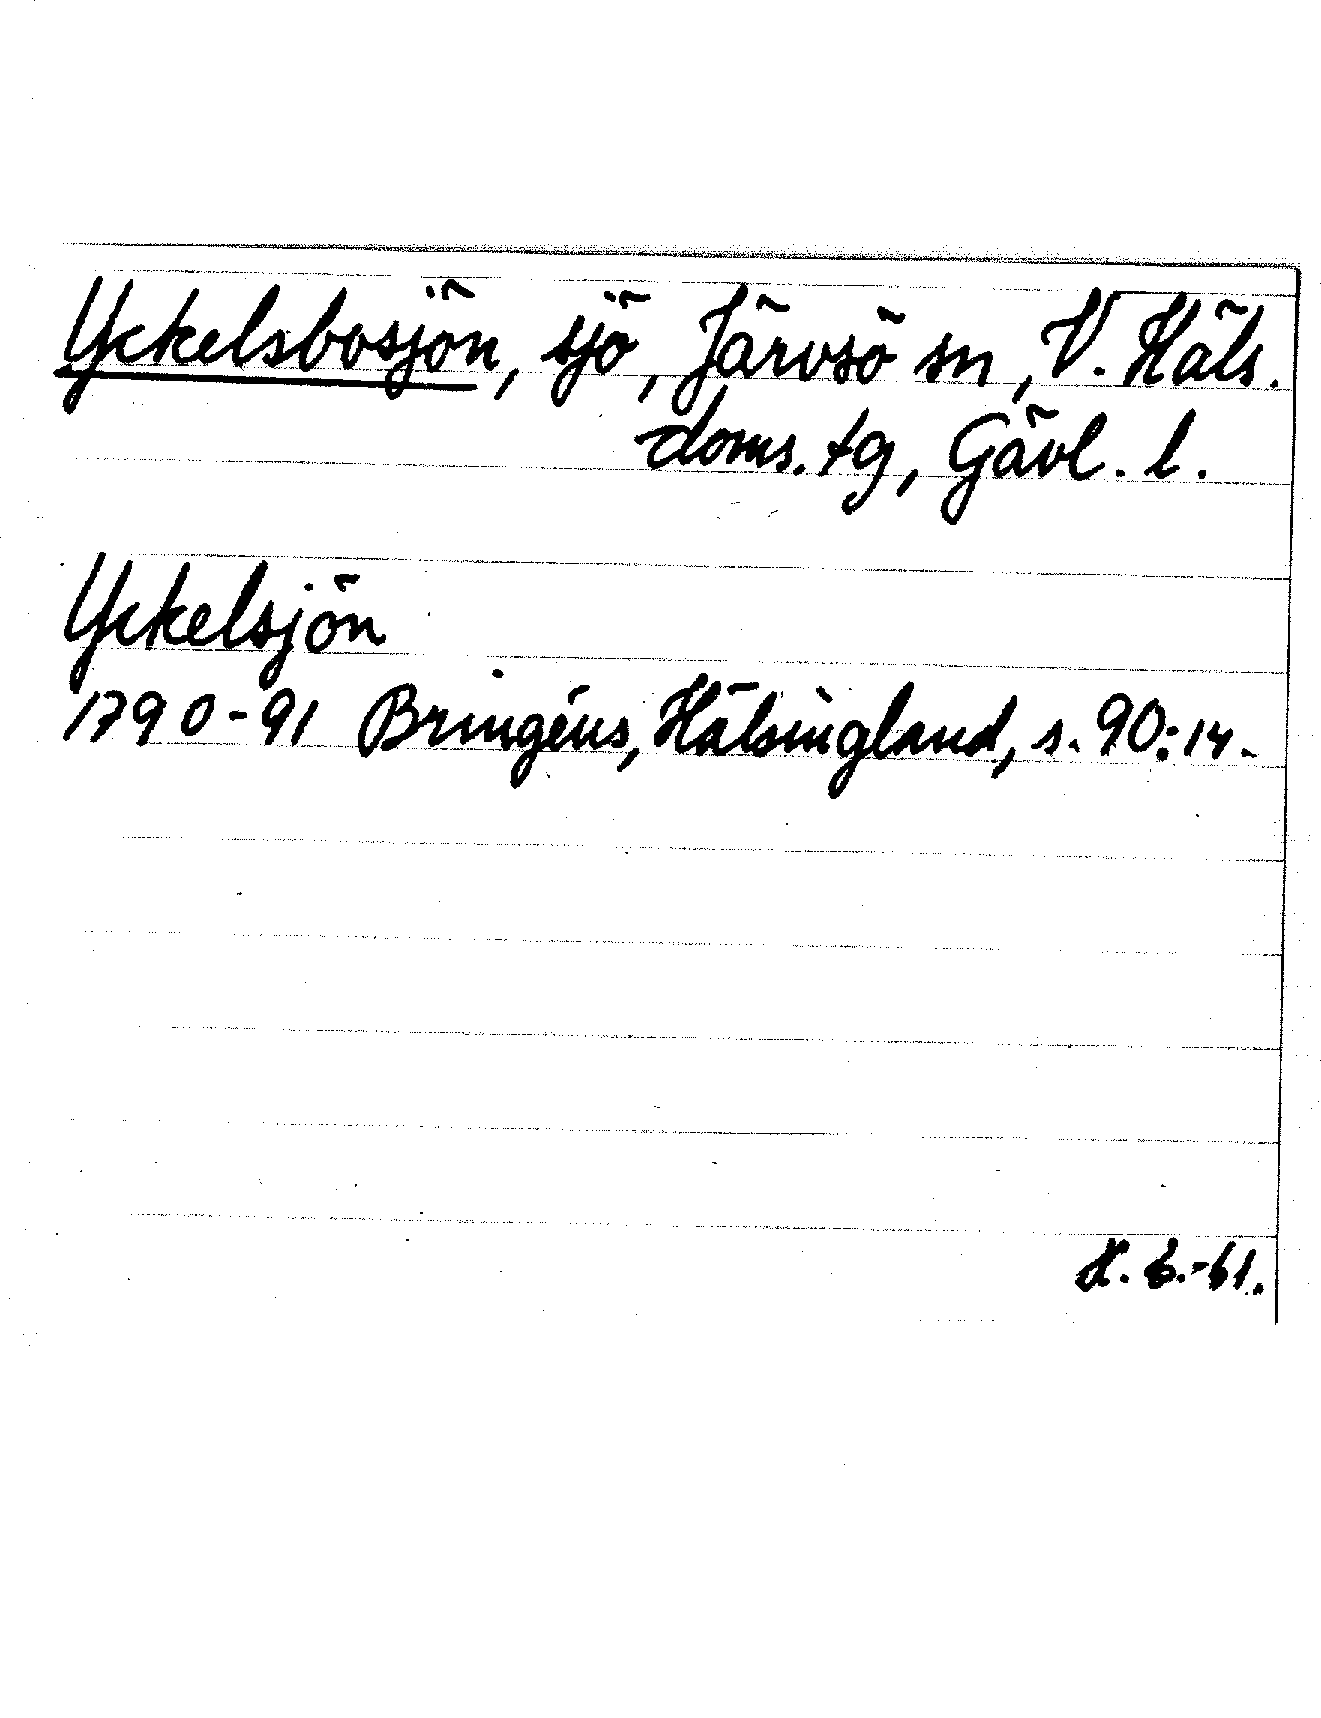 Yckelsbosjön, sjö, Järvsö sn, V. Häls.
doms. tg, Gävl. l.
Yckelsjön
1790-91 Bringéus, Hälsingland, s. 90:14.
H. 6.-61.